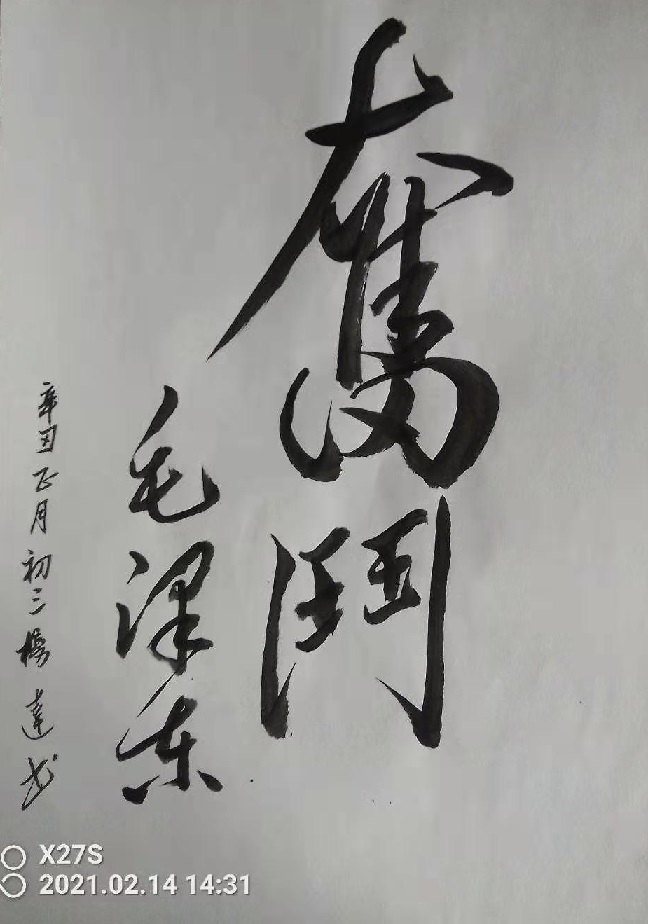 奮鬥
毛澤东
辛丑正月初三楊達书
X27S
2021.02.14 14:31